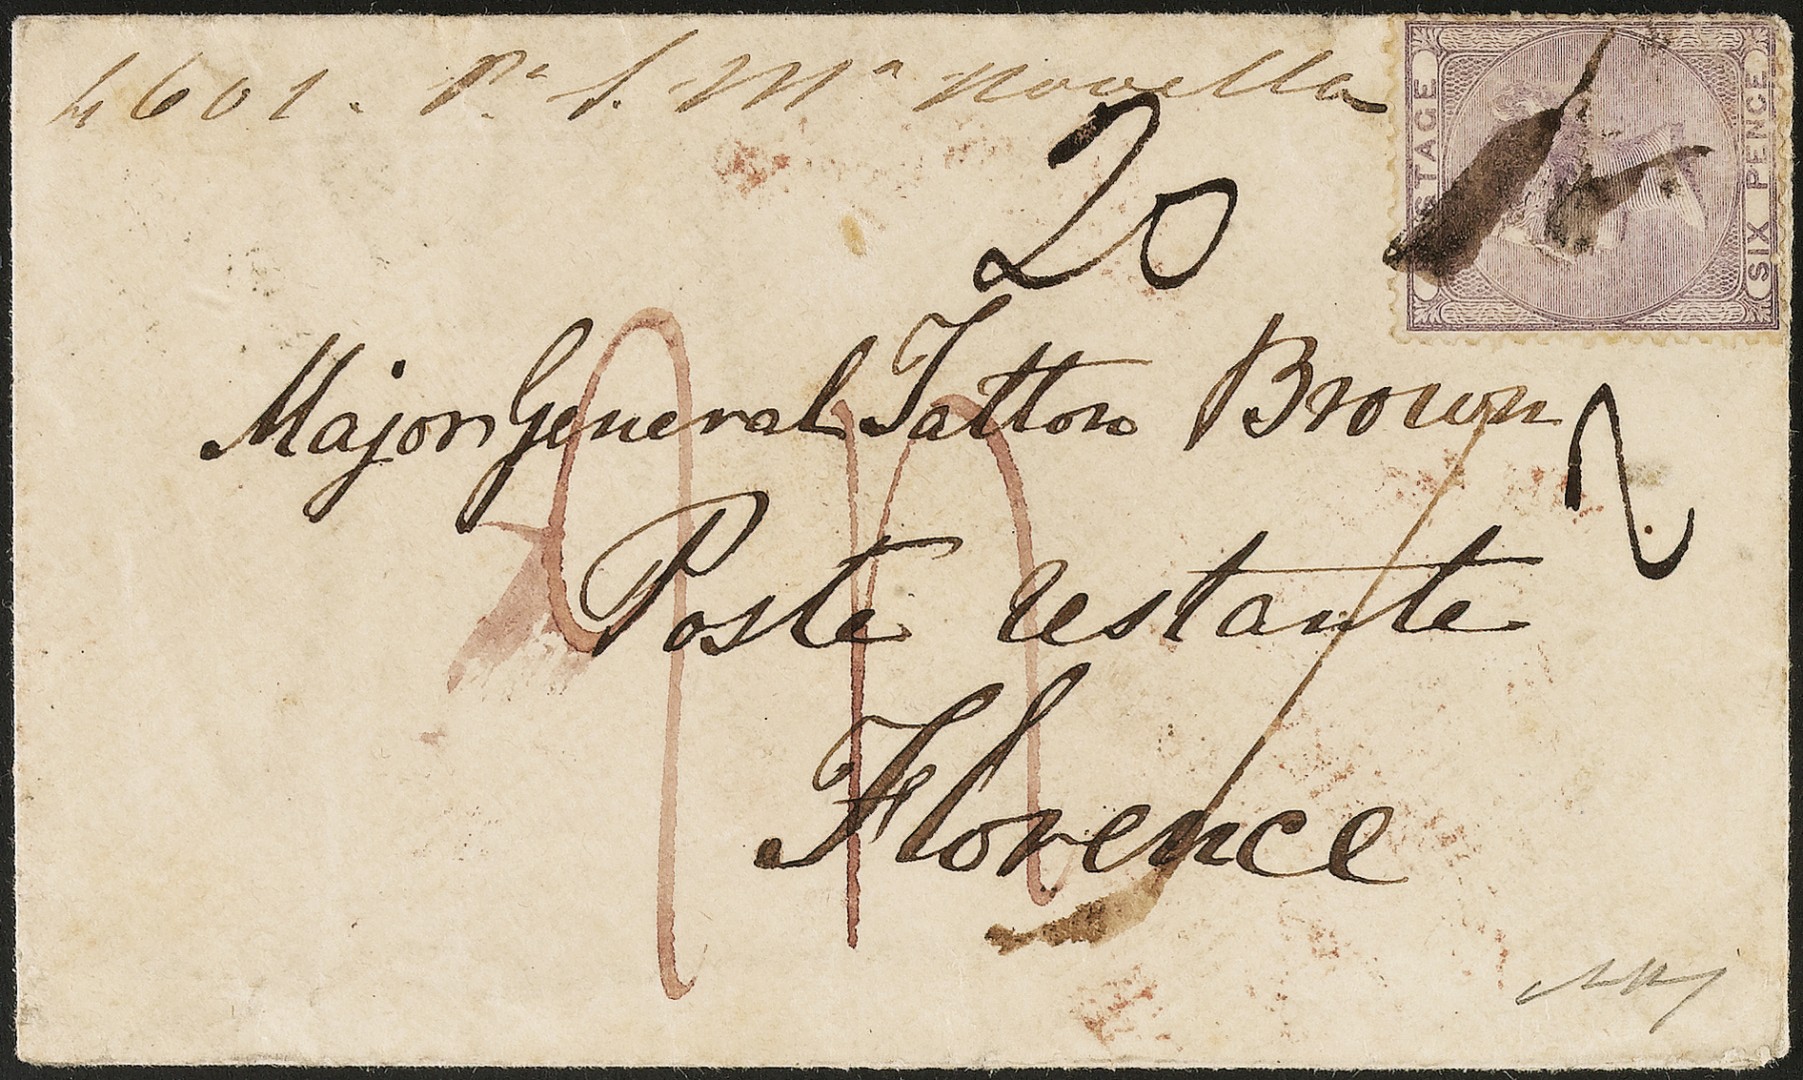 4601. Pa. S. Ma Novella
POSTAGE
SIX PENCE
20
Major General Tatton Brown
2
Poste restante
Florence